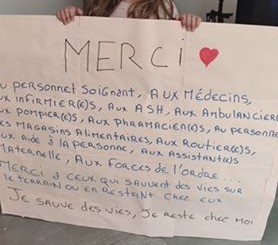 MERCI
PERSONNEL SOIGNANT, AUX MÉDECINS,
INFIRMIER(E)S, AUX ASH, AUX AMBULANCIER
POMPIER(E)S, AUX PHARMACIEN(E)S, AU PERSONNE
MAGASINS ALIMENTAIRES, AUX ROUTIER(E)S,
AIDE À LA PERSONNE, AUX ASSISTANT(E)S
MATERNELLE, AUX FORCES DE L'ORDRE...
MERCI À CEUX QUI SAUVENT DES VIES SUR
LE TERRAIN OU EN RESTANT CHEZ EUX
JE SAUVE DES VIES, JE RESTE CHEZ MOI